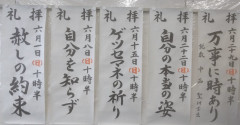 礼拝
六月一日(日)十時半
赦しの約束
礼拝
六月八日(日)十時半
自分を知らず
礼拝
六月十五日(日)十時半
ゲツセマネの祈り
礼拝
六月二十二日(日)十時半
自分の本当の姿
礼拝
六月二十九日(日)十時半
万事に時あり